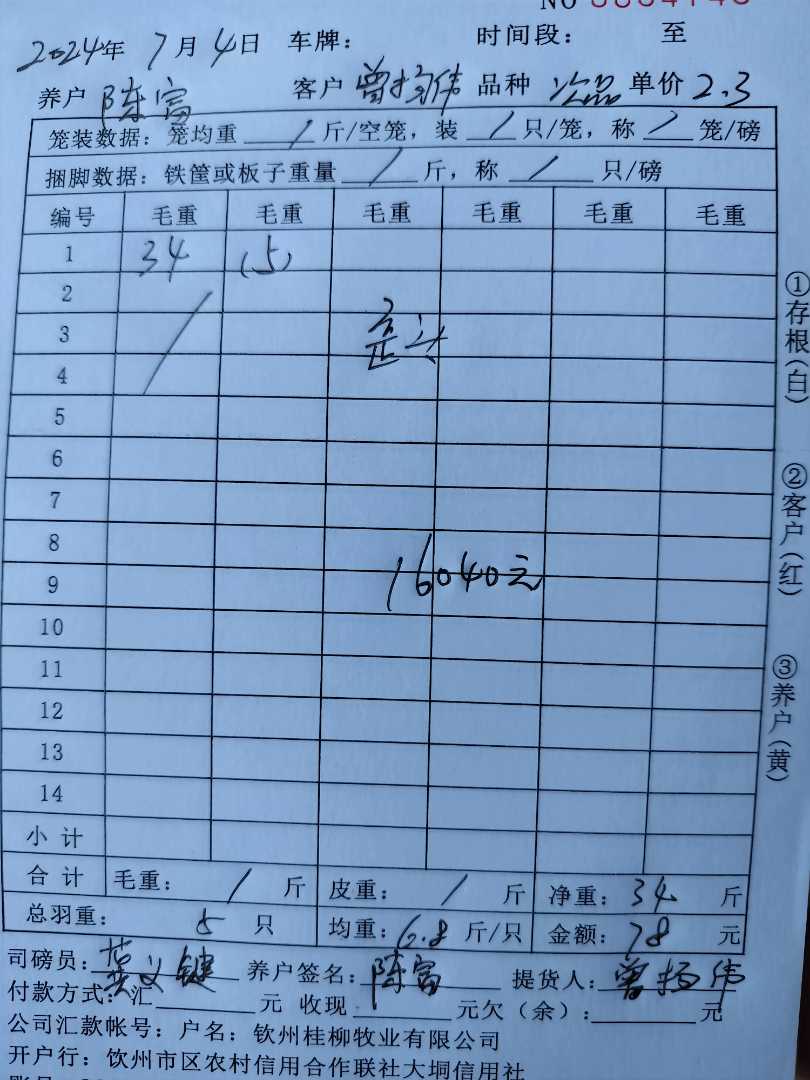 NO
2024年 7月 4日 车牌： 时间段： 至
养户 陈富 客户 曾扬伟 品种 次品 单价 2.3
笼装数据：笼均重 / 斤/空笼，装 / 只/笼，称 / 笼/磅
捆脚数据：铁筐或板子重量 / 斤，称 / 只/磅
编号 毛重 毛重 毛重 毛重 毛重 毛重
1 34 (5)
2
3
4
5
6
7
8
16040元
9
10
11
12
13
14
小计
合计 毛重： / 斤 皮重： / 斤 净重：34 斤
总羽重： 5 只 均重：6.8 斤/只 金额：78 元
司磅员：义键 养户签名：陈富 提货人：曾扬伟
付款方式：汇 元 收现 元欠（余）： 元
公司汇款帐号：户名：钦州桂柳牧业有限公司
开户行：饮州市区农村信用合作联社大垌信用社
①存根（白）
②客户（红）
③养户（黄）